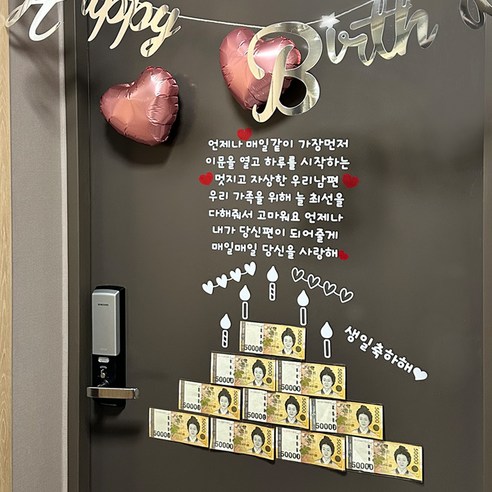 Happy Birth
언제나 매일같이 가장먼저
이문을 열고 하루를 시작하는
멋지고 자상한 우리남편
우리 가족을 위해 늘 최선을
다해줘서 고마워요 언제나
내가 당신편이 되어줄게
매일매일 당신을 사랑해
생일축하해
50000
50000 50000
50000 50000 50000
50000 50000 50000 50000